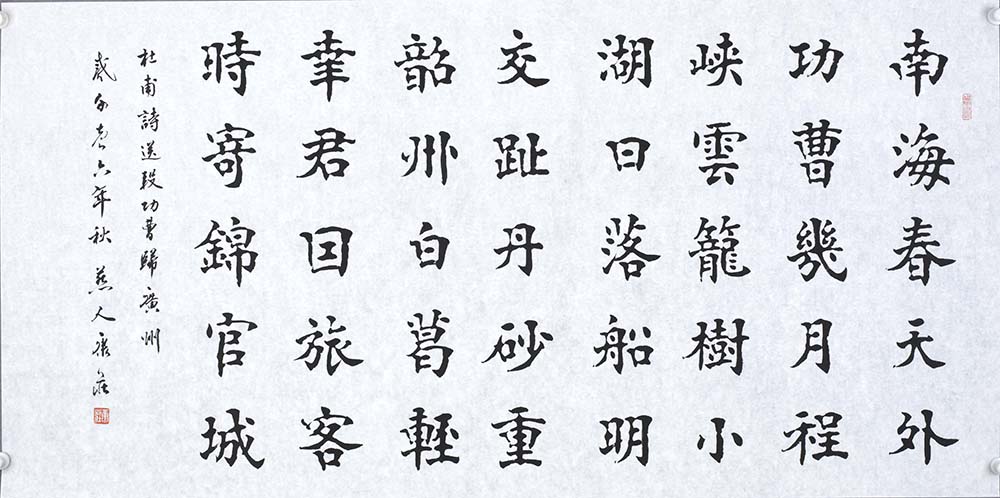 南海春天外
功曹幾月程
峽雲籠樹小
湖日落船明
交趾丹砂重
韶州白葛輕
幸君因旅客
時寄錦官城
杜甫詩送段功曹歸廣州
六年秋燕人